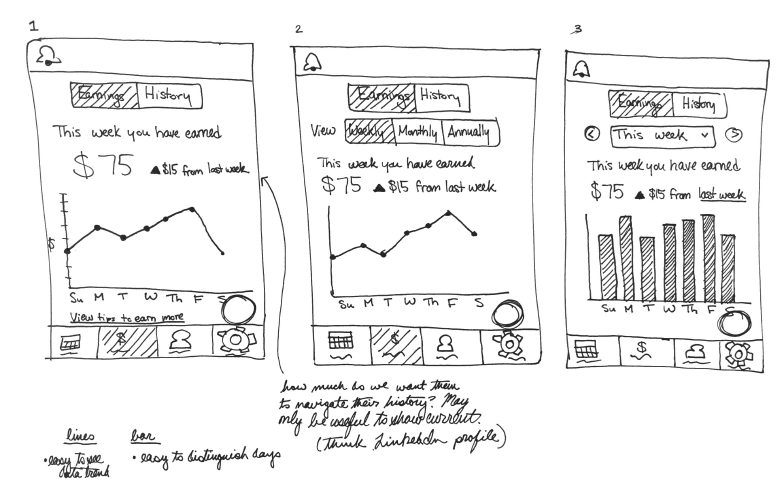 1
Earnings History
This week you have earned
$75 ▲$15 from last week
$
Su M T W Th F S
View tips to earn more
$
2
Earnings History
View Weekly Monthly Annually
This week you have earned
$75 ▲ $15 from last week
Su M T W Th F S
$
3
Earnings History
< This week >
This week you have earned
$75 ▲ $15 from last week
Su M T W Th F S
$
how much do we want them
to navigate their history? May
only be useful to show current.
(think LinkedIn profile)
lines
• easy to see
data trend
bar
• easy to distinguish days